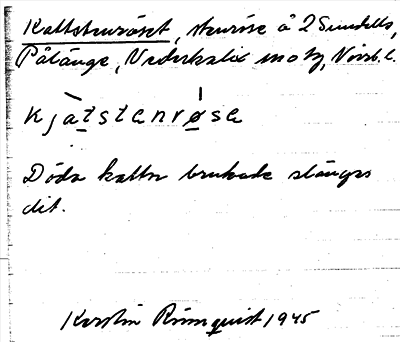 Kattstenröset, stenröse å 2 Sundells,
Pålänge, Nederkalix sn o tg, Norrb. l.
kjatstenrøse
Döda kattor brukade slängas
dit.
Kerstin Rönnquist 1945